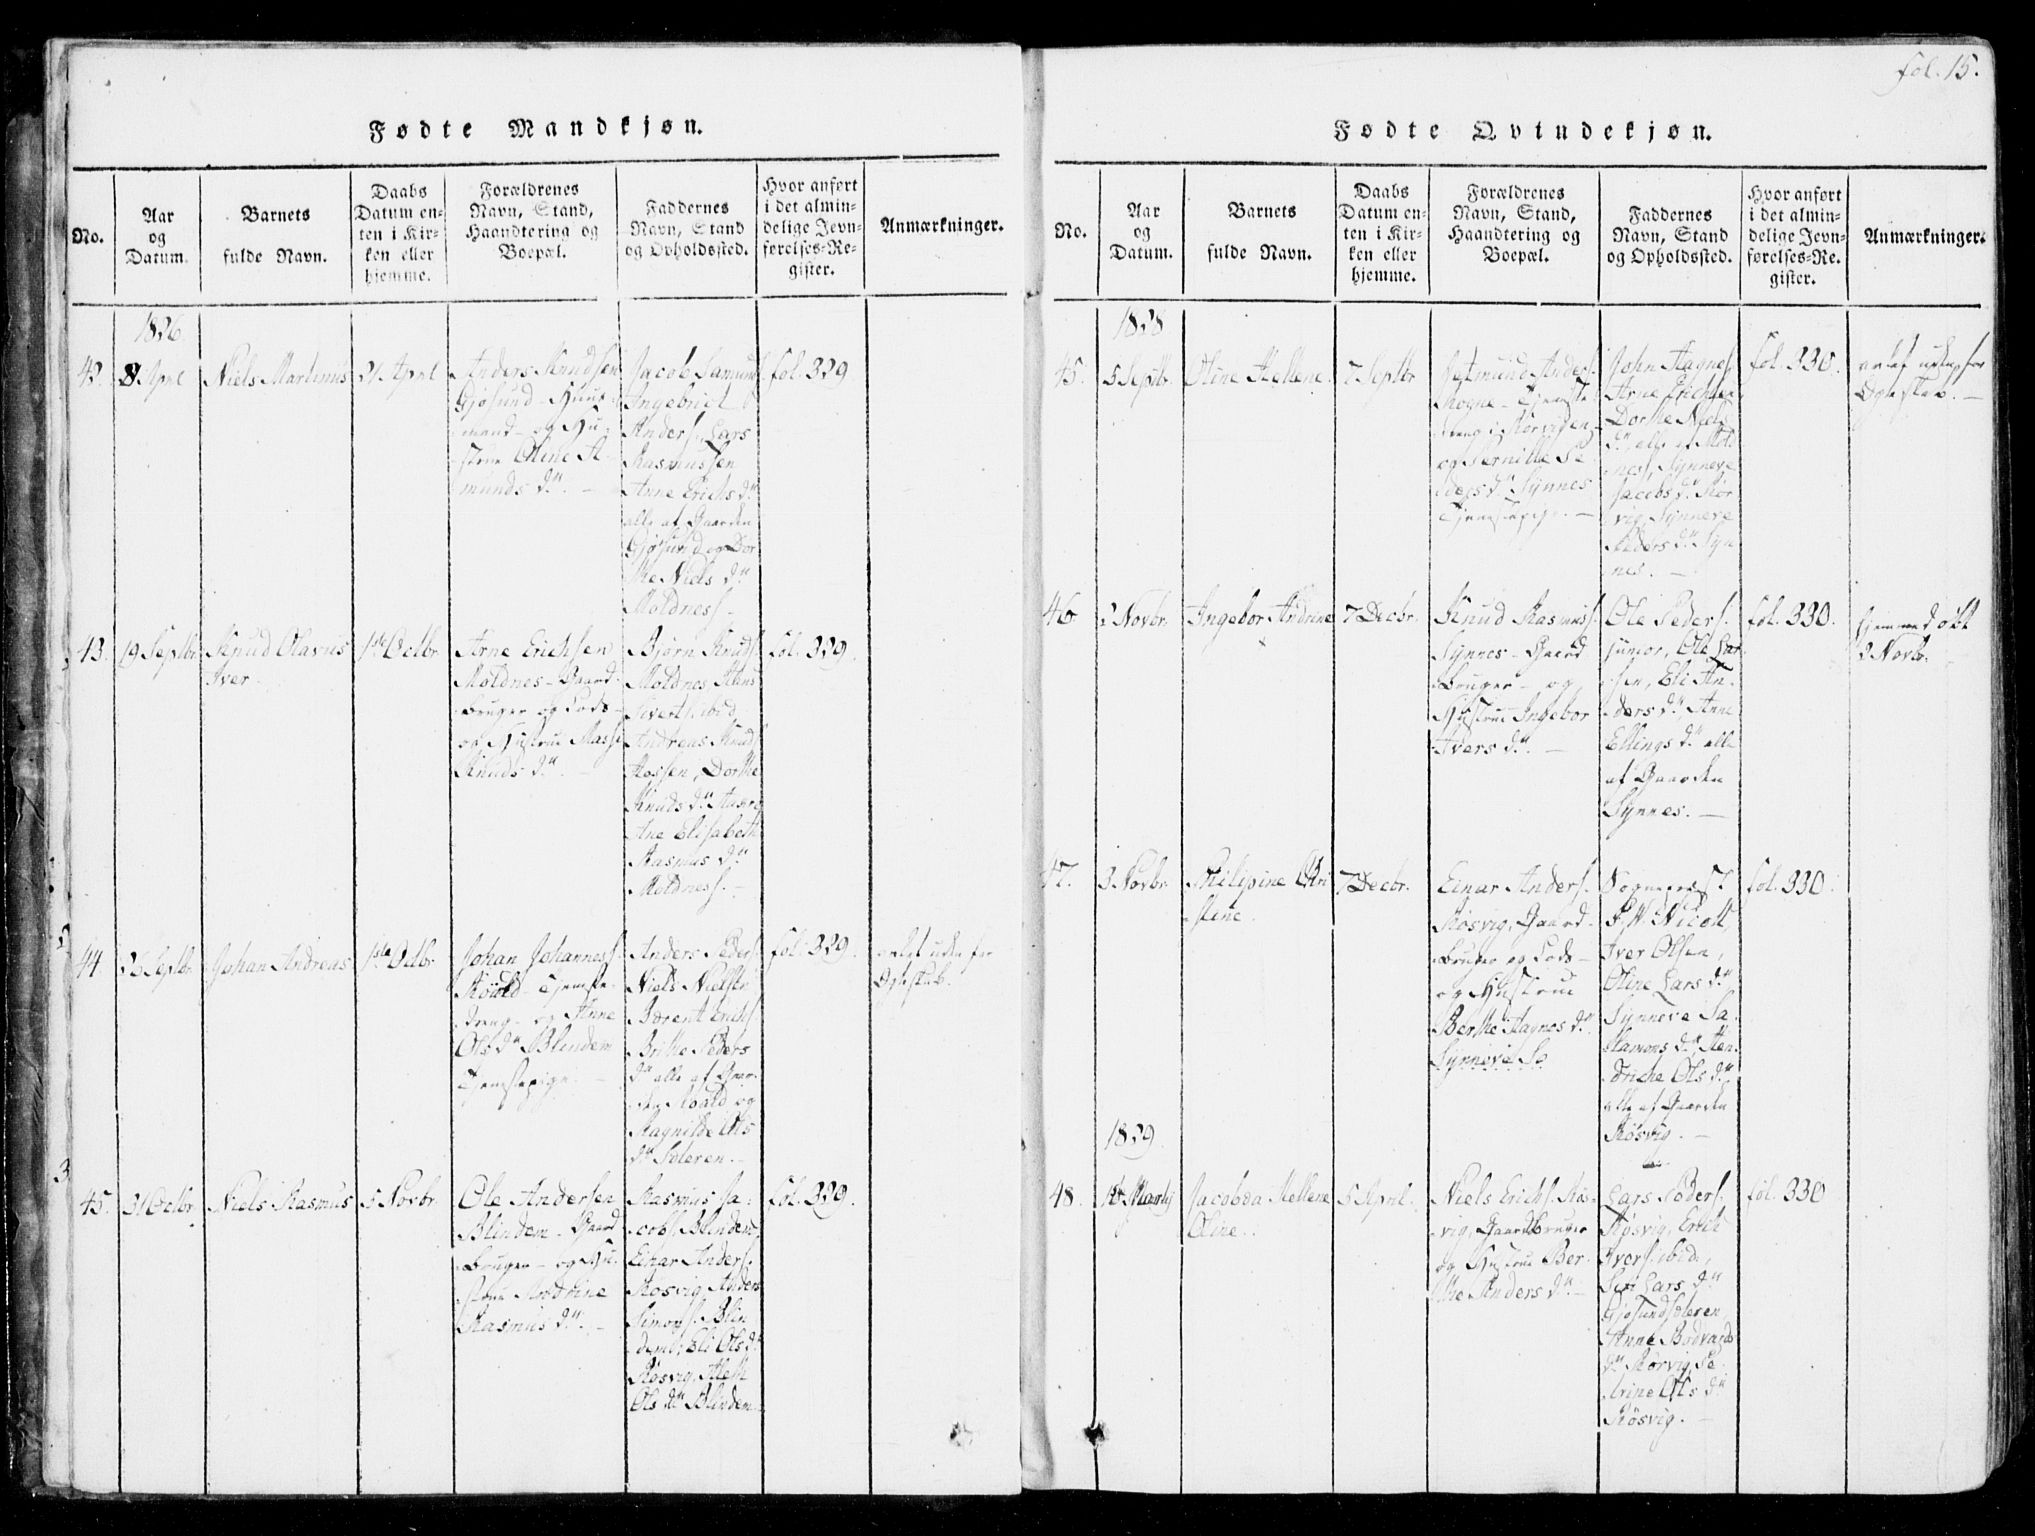 fol. 15.
Fødte Mandkjøn.
No.
Aar
og
Datum.
Barnets
fulde Navn.
Daabs
Datum en-
ten i Kir-
ken eller
hjemme.
Forældrenes
Navn, Stand,
Haandtering og
Boepæl.
Faddernes
Navn, Stand
og Opholdssted.
Hvor anført
i det almin-
delige Jevn-
førelses-Re-
gister.
Anmærkninger.
1826
42.
April
Niels Martinus
21 April
Anders Knudsen
Gjøsund - Huus-
mand - og Hu-
strue Oline A-
munds dr. -
Jacob Samunds.
Ingebrigt
Anders., Lars
Rasmussen
Anne Erichs dr.
alle af Gaarden
Gjøsund og Dor-
the Niels dr.
Moldness. -
fol. 329
43.
19 Septbr.
Knud Olavus
Iver.
1ste Octbr.
Arne Erichsen
Moldnes - Gaard-
bruger og Lods -
og Hustrue Masse
Knuds dr. -
Bjørn Knuds.
Moldnes, Hans
Siverts. ibid.
Andreas Knuds.
Hossen, Dorthe
Knuds dr.
Ane Elisabeth
Rasmus dr.
Moldness. -
fol. 329
44.
26 Septbr.
Johan Andreas
1ste Octbr.
Johan Johanness.
Roald - Tjeneste-
dreng - og Anne
Ols dr. Blindem
Tjenestepige. -
Anders Peders.
Niels Nielss.
Berent Erichs.
Brithe Peders
dr. alle af Gaar-
den Roald og
Magnilde Ols
dr. Søleren. -
fol. 329.
avlet uden for
Ægteskab.
45.
31 Octbr.
Niels Rasmus
5 Novbr.
Ole Andersen
Blindem - Gaard-
bruger - og Hu-
strue Andrine
Rasmus dr. -
Rasmus Ja-
cobs. Blindem,
Einar Anders.
Røsvig, Anders
Simons. Blin-
dem, Eli Ols dr.
Røsvig,
Ols dr. Blindem.
fol. 329.
Fødte Qvindekjøn.
No.
Aar
og
Datum.
Barnets
fulde Navn.
Daabs
Datum en-
ten i Kir-
ken eller
hjemme.
Forældrenes
Navn, Stand,
Haandtering og
Boepæl.
Faddernes
Navn, Stand
og Opholdssted.
Hvor anført
i det almin-
delige Jevn-
førelses-Re-
gister.
Anmærkninger.
1828
45.
5 Septbr.
Oline Hellene.
7 Septbr.
Anders.
Rogne - Tjeneste-
dreng i Rørvigen -
og Pernille Pe-
ders dr. Synnes
Tjenestepige. -
John Aagnes.
Arne Erichsen
Dorthe Niels
dr. alle af Mold-
nes, Synneve
Jacobs dr. Rør-
vig, Synneve
Peders dr. Syn-
nes. -
fol. 330.
avlet uden for
Ægteskab. -
46
2 Novbr.
Ingebor Andrine
7 Decbr.
Knud Rasmuss.
Synnes - Gaard-
bruger - og
Hustrue Ingebor
Ivers dr. -
Ole Peders.
junior, Ole Lar-
sen, Eli An-
ders dr. Anne
Ellings dr. alle
af Gaarden
Synnes. -
fol. 330.
hjemmedøbt
2 Novbr.
47.
3 Novbr.
Philipine Chri-
stine.
7 Decbr.
Einar Anders.
Røsvig, Gaard-
bruger og Lods -
og Hustrue
Berthe Aagnes dr.
Synneve Pe
Sognepræst
Nicoll,
Iver Olsen,
Oline Lars dr.
Synneve Sa-
lamons dr. Hen-
driche Ols dr.
alle af Gaarden
Røsvig. -
fol. 330.
1829.
48.
Martij
Jacobda Hellene
Oline.
5 April.
Niels Erichs. Røs-
vig, Gaardbruger
og Hustrue Ber-
the Anders dr. -
Lars Peders.
Røsvig, Erich
Ivers. ibid.,
Siri Lars dr.
Gjøsundsøleren,
Anne Bodvards
dr. Rørvig, Pe-
trine Ols dr.
Røsvig. -
fol. 330